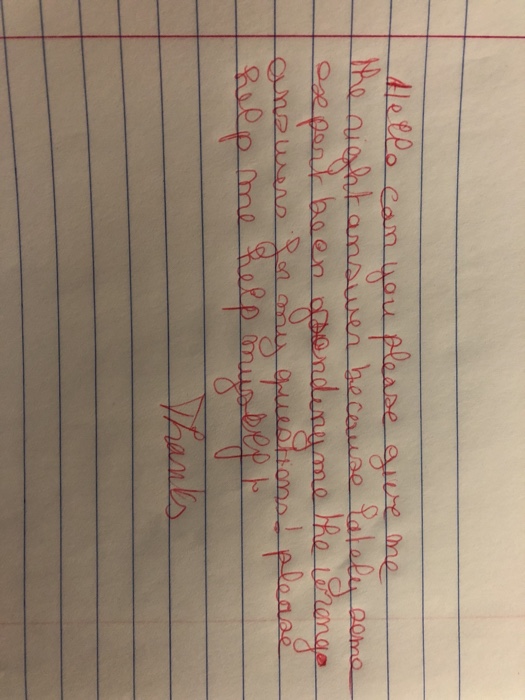 Hello can you please give me
the right answer because lately some
expert been sending me the wrong
answers for my questions! please
help me help myself!
Thanks